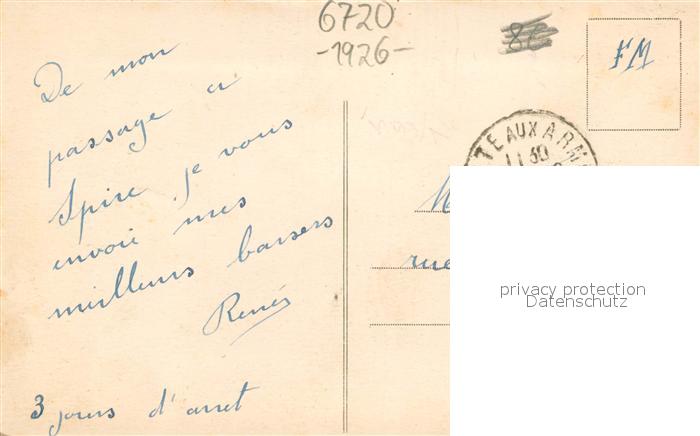 6720
-1926-
FM
De mon
passage a
Spire je vous
envoie mes
meilleurs baisers
René
3 jours d'arret
TE AUX ARM
11 30
M
rue
privacy protection
Datenschutz